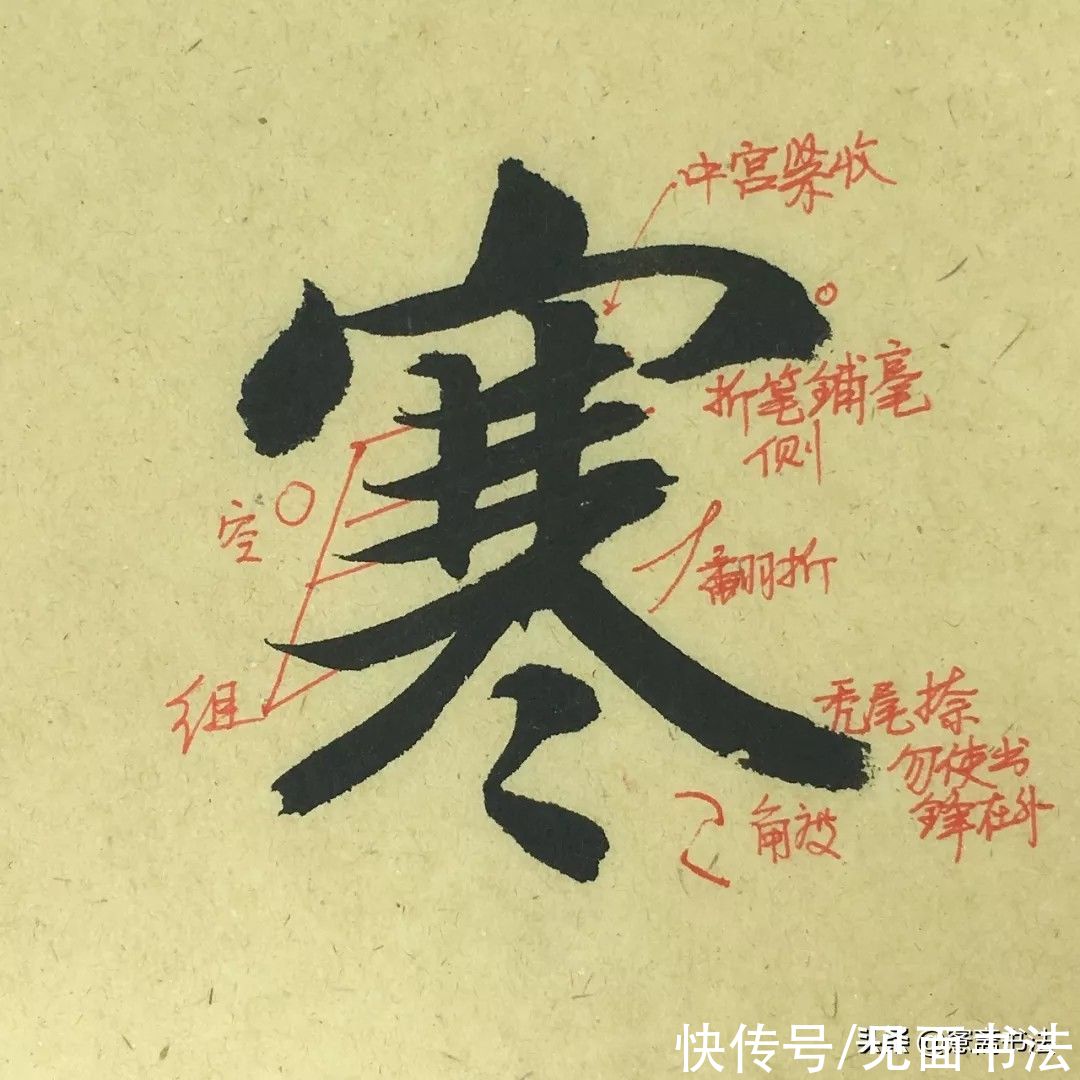 寒
中宫紧收
折笔铺毫
侧
空
翻折
组
秃尾捺
勿使出
锋在外
快传号/见面书法